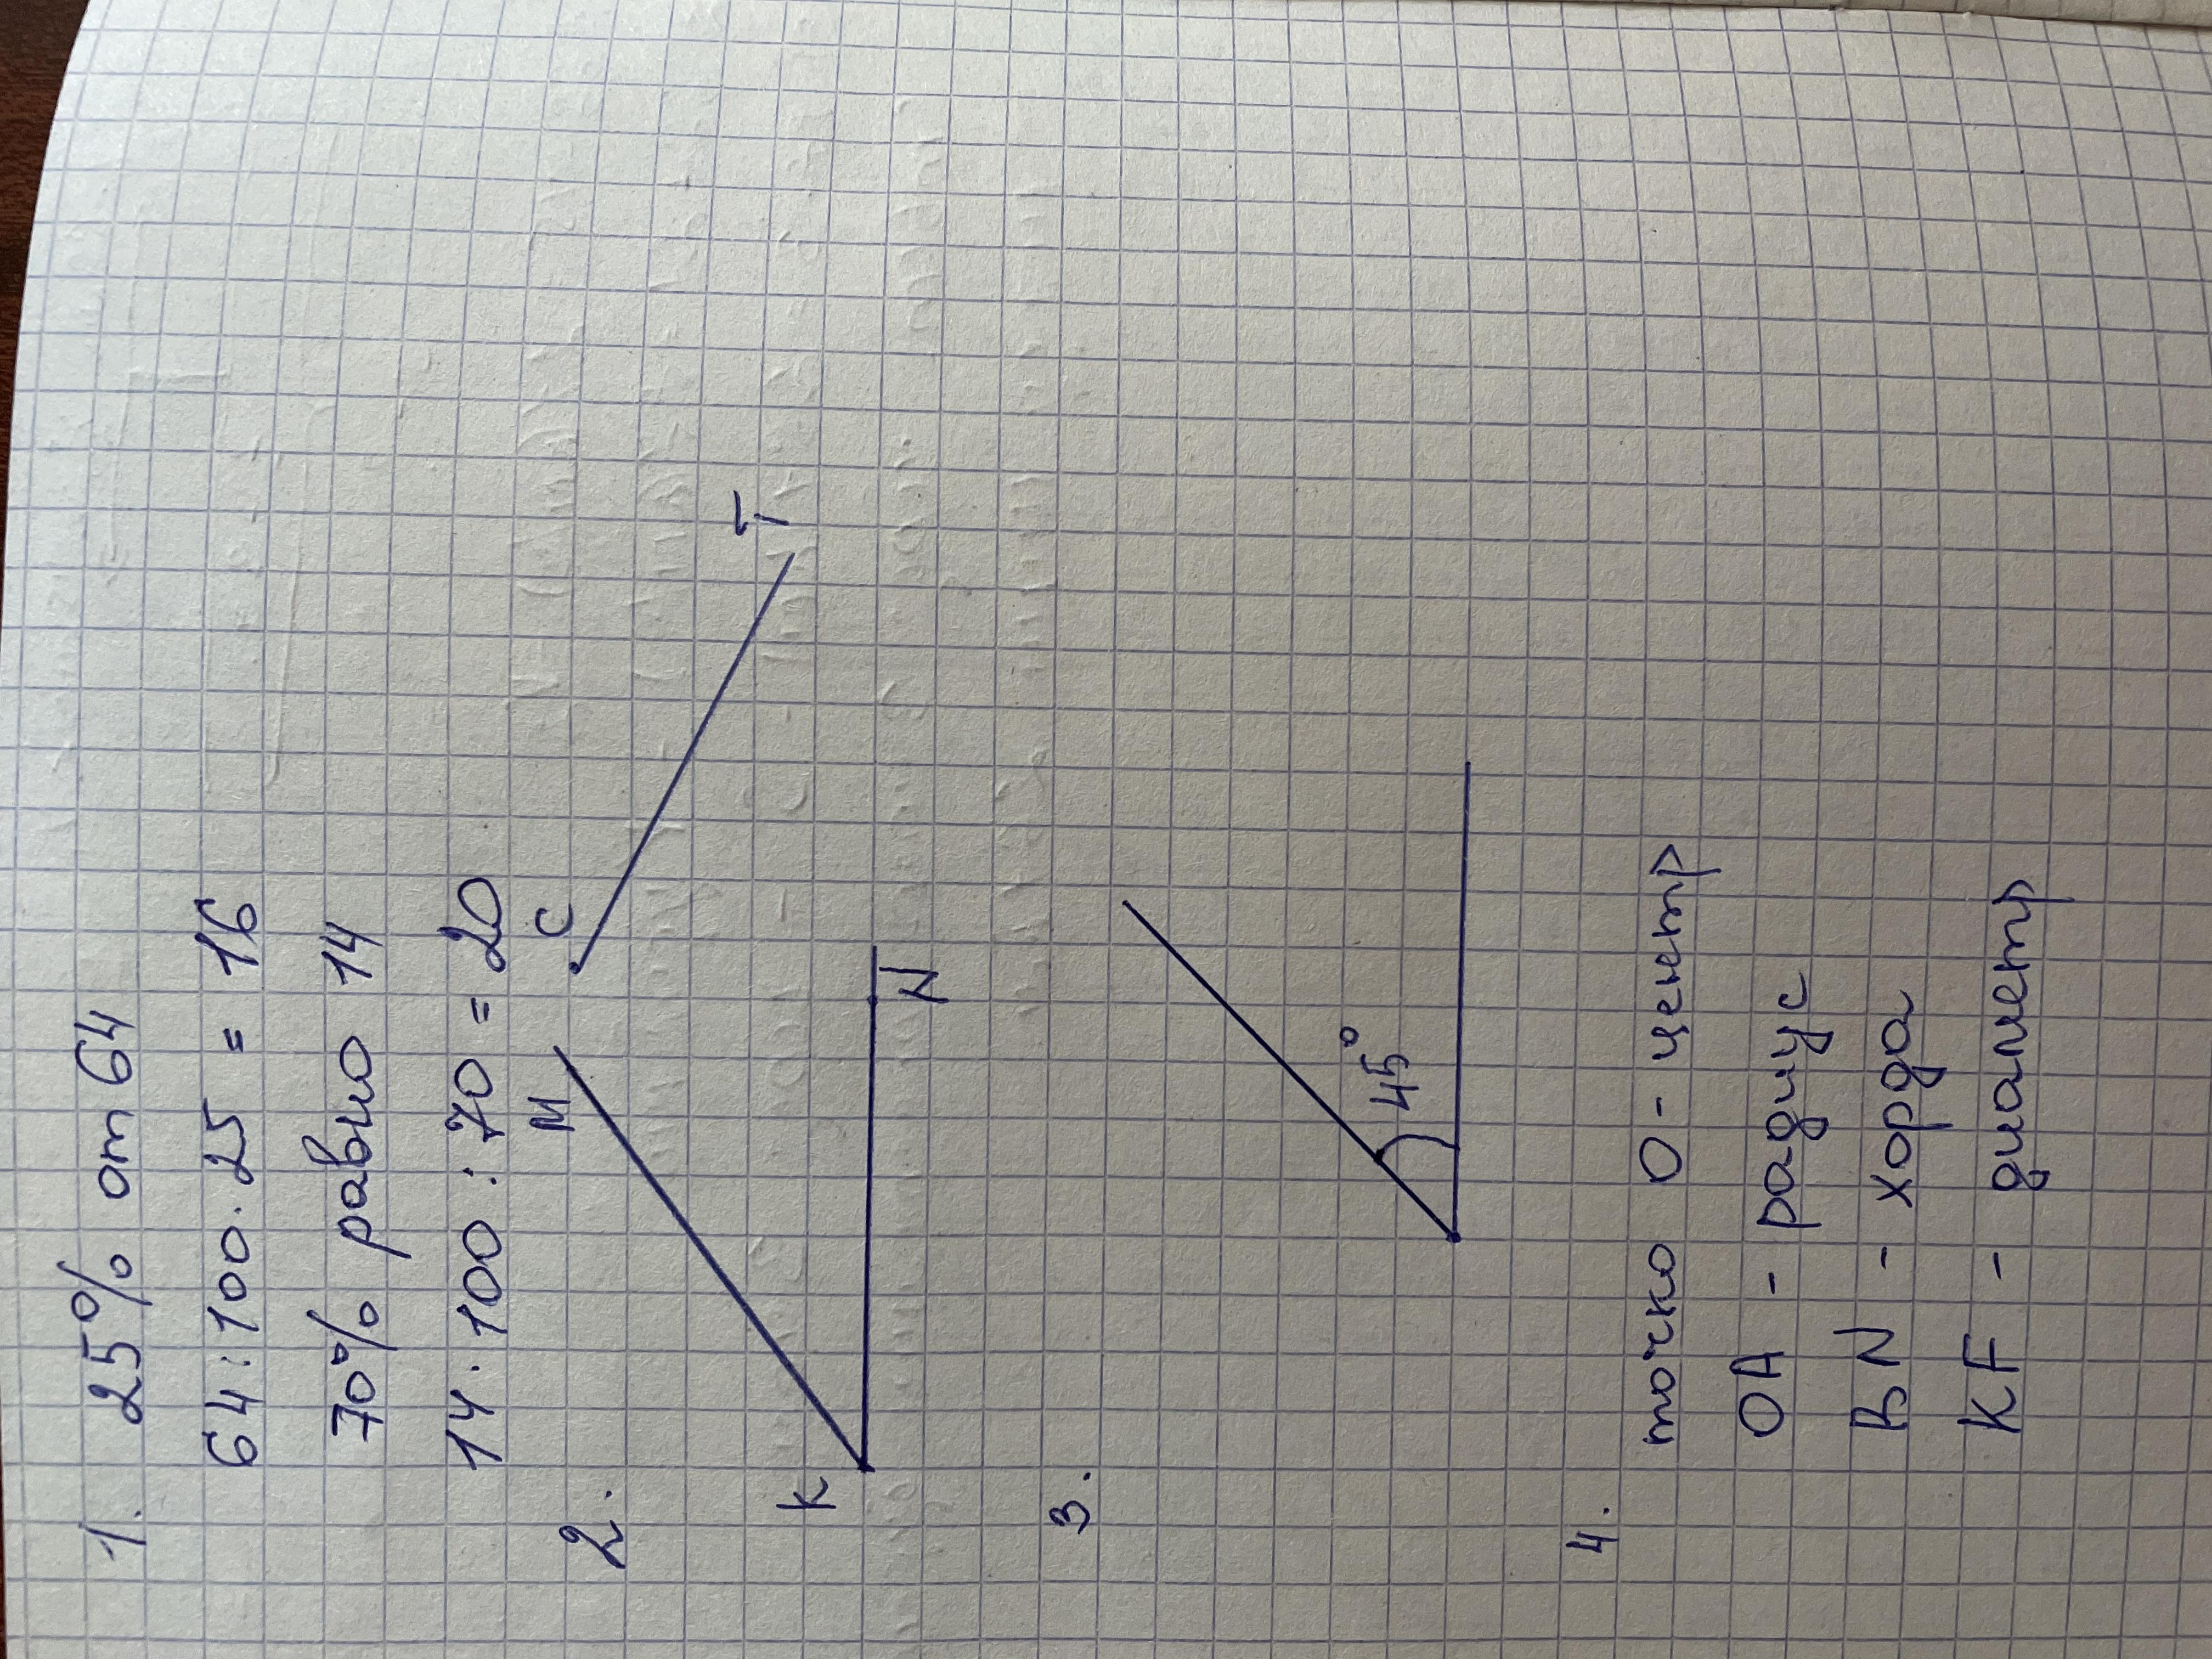 1. 25% от 64
64 : 100 · 25 = 16
70% равно 14
14 · 100 : 70 = 20
2.
M C
T
K
N
3.
45°
4. точко O - центр
OA - радиус
BN - хорда
KF - диаметр